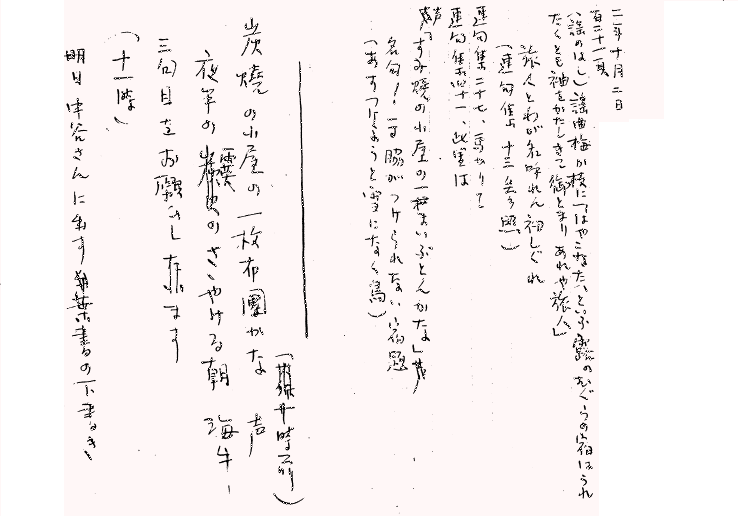 二二年十月二日
百三十一頁
(謡のはし)謡曲梅が枝に「はやこなたへといふ露のむぐらの宿はうれ
たくとも袖をかたしきて御とまりあれや旅人」
旅人とわが名呼れん初しぐれ
(連句集 十三参照)
連句集二十七、
連句集四十一、此里は
「すみ焼の小屋の一枚ぶとんかな」
名句!一寸脇がつけられない 宿題
(あすつけようと
炭焼の小屋の一枚布團かな 声
夜半の霙のさゝやける朝 海牛
三句目をお願ひします
(十一時)
明日 中谷さんに出す葉書の下書き